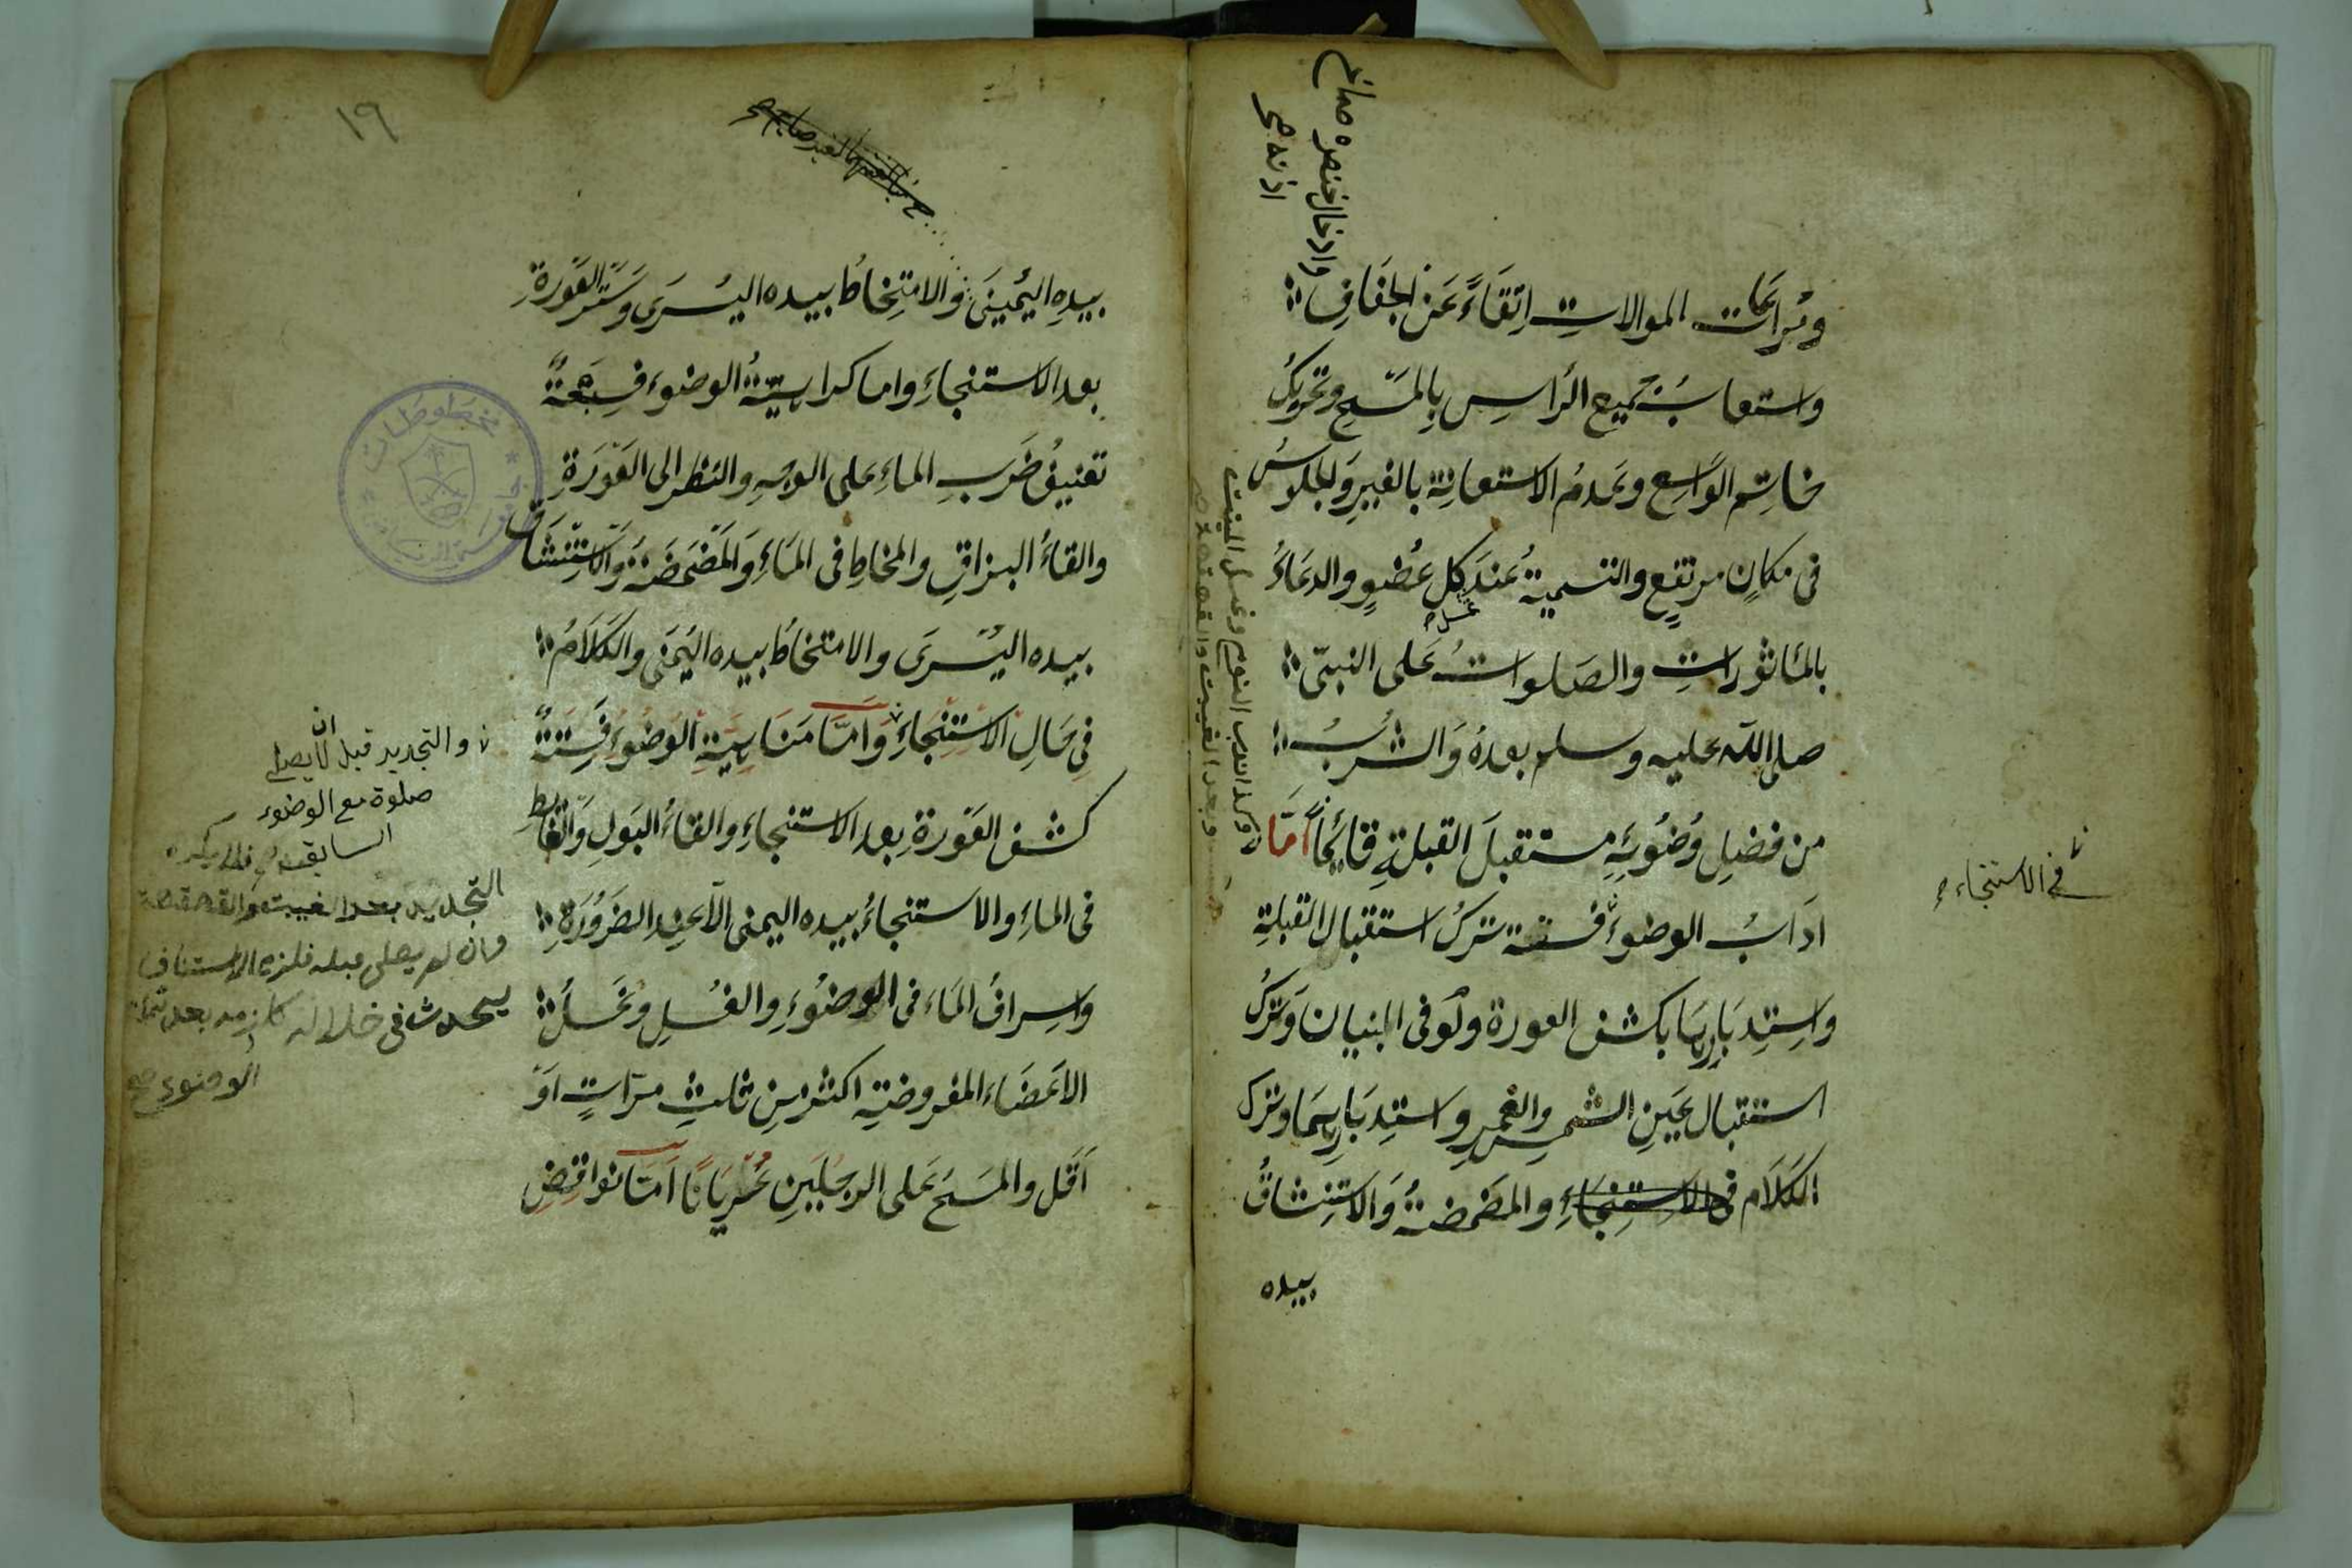 ومراعات الموالات اتقاءً عن الجفاف
واستعاب جميع الرأس بالمسح وتحريك
خاتم الواسع وعدم الاستعانة بالغير والجلوس
فى مكان مرتفع والتسمية عند كل عضو والدعاء
غسل
بالمأثورات والصلوات على النبى
صلى الله عليه وسلم بعده والشرب
من فضل وضوئه مستقبل القبلة قائمًا أما
اداب الوضوء فستة ترك استقبال القبلة
واستدبارها بكشف العورة ولو فى البنيان وترك
استقبال عين الشمس والقمر واستدبارهما وترك
الكلام فى الاستنجاء والمضمضة والاستنشاق
بيده
وادخال خنصره صماخ
اذنه صح
فى الاستنجاء
وكذا ندب النوم وغسل الميت
وبعد الغيبت والقهقهة
١٩
بيده اليمينى والامتخاط بيده اليسرى وستر العورة
بعد الاستنجاء واما كراهية الوضوء فسبعة
تعنيف ضرب الماء على الوجه والنظر الى العورة
والقاء البزاق والمخاط فى الماء والمضمضة والاستنشاق
بيده اليسرى والامتخاط بيده اليمنى والكلام
فى حال الاستنجاء واما مناهية الوضوء فستة
كشف العورة بعد الاستنجاء والقاء البول والغائط
فى الماء والاستنجاء بيده اليمنى الا عند الضرورة
واسراف الماء فى الوضوء والغسل وغسل
الاعضاء المفروضة اكثر من ثلث مرات او
اقل والمسح على الرجلين عريانا اما نواقض
والتجديد قبل ان يصلى
صلوة مع الوضوء
السابقة فلا يكره
التجديد بعد الغيبت والقهقهة
وان لم يصلى قبله فلزم الاستناف
يحدث فى خلاله كلزمه بعد تمام
الوضوء صح
مخطوطات